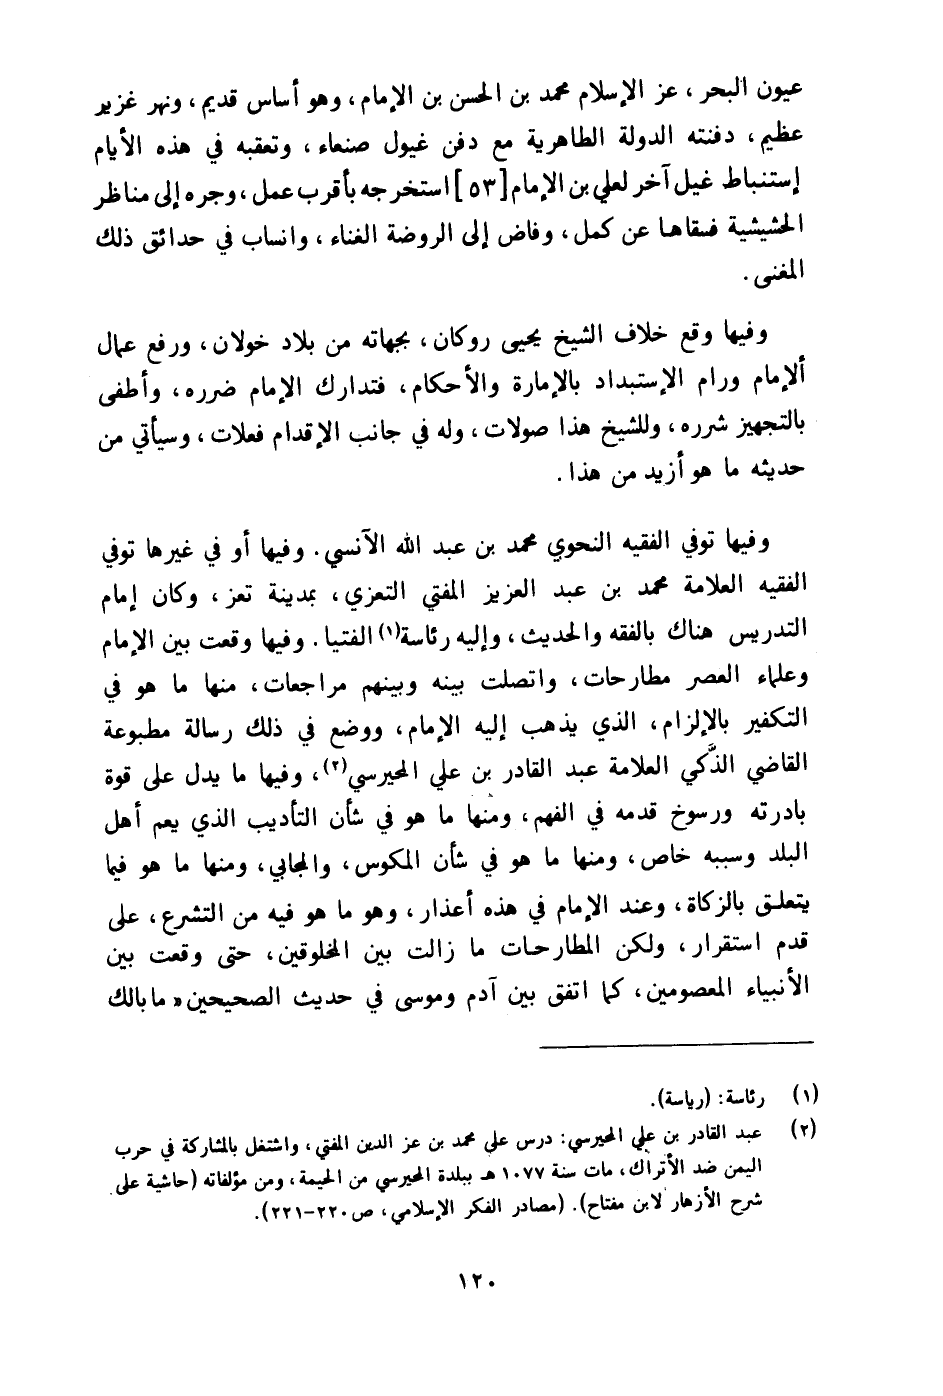 عيون البحر ، عز الإسلام محمد بن الحسن بن الإمام ، وهو أساس قديم ، ونهر غزير
عظيم ، دفنته الدولة الطاهرية مع دفن غيول صنعاء ، وتعقبه في هذه الأيام
إستنباط غيل آخر لعلي بن الإمام [ ٥٣ ] استخرجه بأقرب عمل ، وجره إلى مناظر
الحشيشية فسقاها عن كمل ، وفاض إلى الروضة الغناء ، وانساب في حدائق ذلك
المغنى .
وفيها وقع خلاف الشيخ يحيى روكان ، بجهاته من بلاد خولان ، ورفع عمال
ألإمام ورام الإستبداد بالإمارة والأحكام ، فتدارك الإمام ضرره ، وأطفى
بالتجهيز شرره ، وللشيخ هذا صولات ، وله في جانب الإقدام فعلات ، وسيأتي من
حديثه ما هو أزيد من هذا .
وفيها توفي الفقيه النحوي محمد بن عبد الله الآنسي . وفيها أو في غيرها توفي
الفقيه العلامة محمد بن عبد العزيز المفتي التعزي ، بمدينة تعز ، وكان إمام
التدريس هناك بالفقه والحديث ، وإليه رئاسة(١) الفتيا . وفيها وقعت بين الإمام
وعلماء العصر مطارحات ، واتصلت بينه وبينهم مراجعات ، منها ما هو في
التكفير بالإلزام ، الذي يذهب إليه الإمام ، ووضع في ذلك رسالة مطبوعة
القاضي الذَّكي العلامة عبد القادر بن علي المحيرسي(٢) ، وفيها ما يدل على قوة
بادرته ورسوخ قدمه في الفهم ، ومنها ما هو في شأن التأديب الذي يعم أهل
البلد وسببه خاص ، ومنها ما هو في شأن المكوس ، والمجابي ، ومنها ما هو فيما
يتعلق بالزكاة ، وعند الإمام في هذه أعذار ، وهو ما هو فيه من التشرع ، على
قدم استقرار ، ولكن المطارحات ما زالت بين المخلوقين ، حتى وقعت بين
الأنبياء المعصومين ، كما اتفق بين آدم وموسى في حديث الصحيحين « ما بالك
(١) رئاسة : (رياسة) .
(٢) عبد القادر بن علي المحيرسي : درس على محمد بن عز الدين المفتي ، واشتغل بالمشاركة في حرب
اليمن ضد الأتراك ، مات سنة ١٠٧٧ هـ ببلدة المحيرسي من الحيمة ، ومن مؤلفاته (حاشية على
شرح الأزهار لابن مفتاح) . (مصادر الفكر الإسلامي ، ص ٢٢٠-٢٢١) .
١٢٠